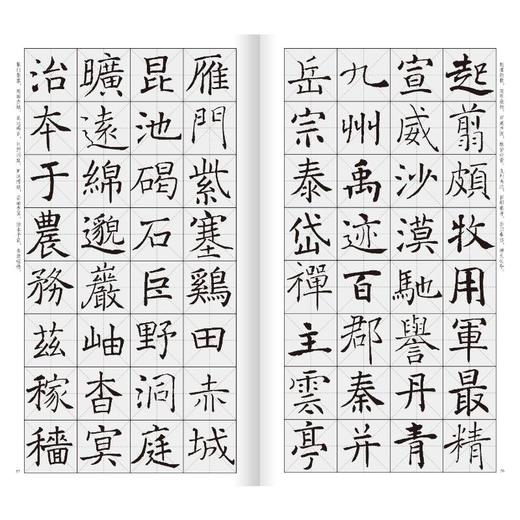 起翦頗牧用軍最精
宣威沙漠馳譽丹青
九州禹迹百郡秦并
岳宗泰岱禪主雲亭
雁門紫塞雞田赤城
昆池碣石巨野洞庭
曠遠綿邈巖岫杳冥
治本于農務茲稼穡